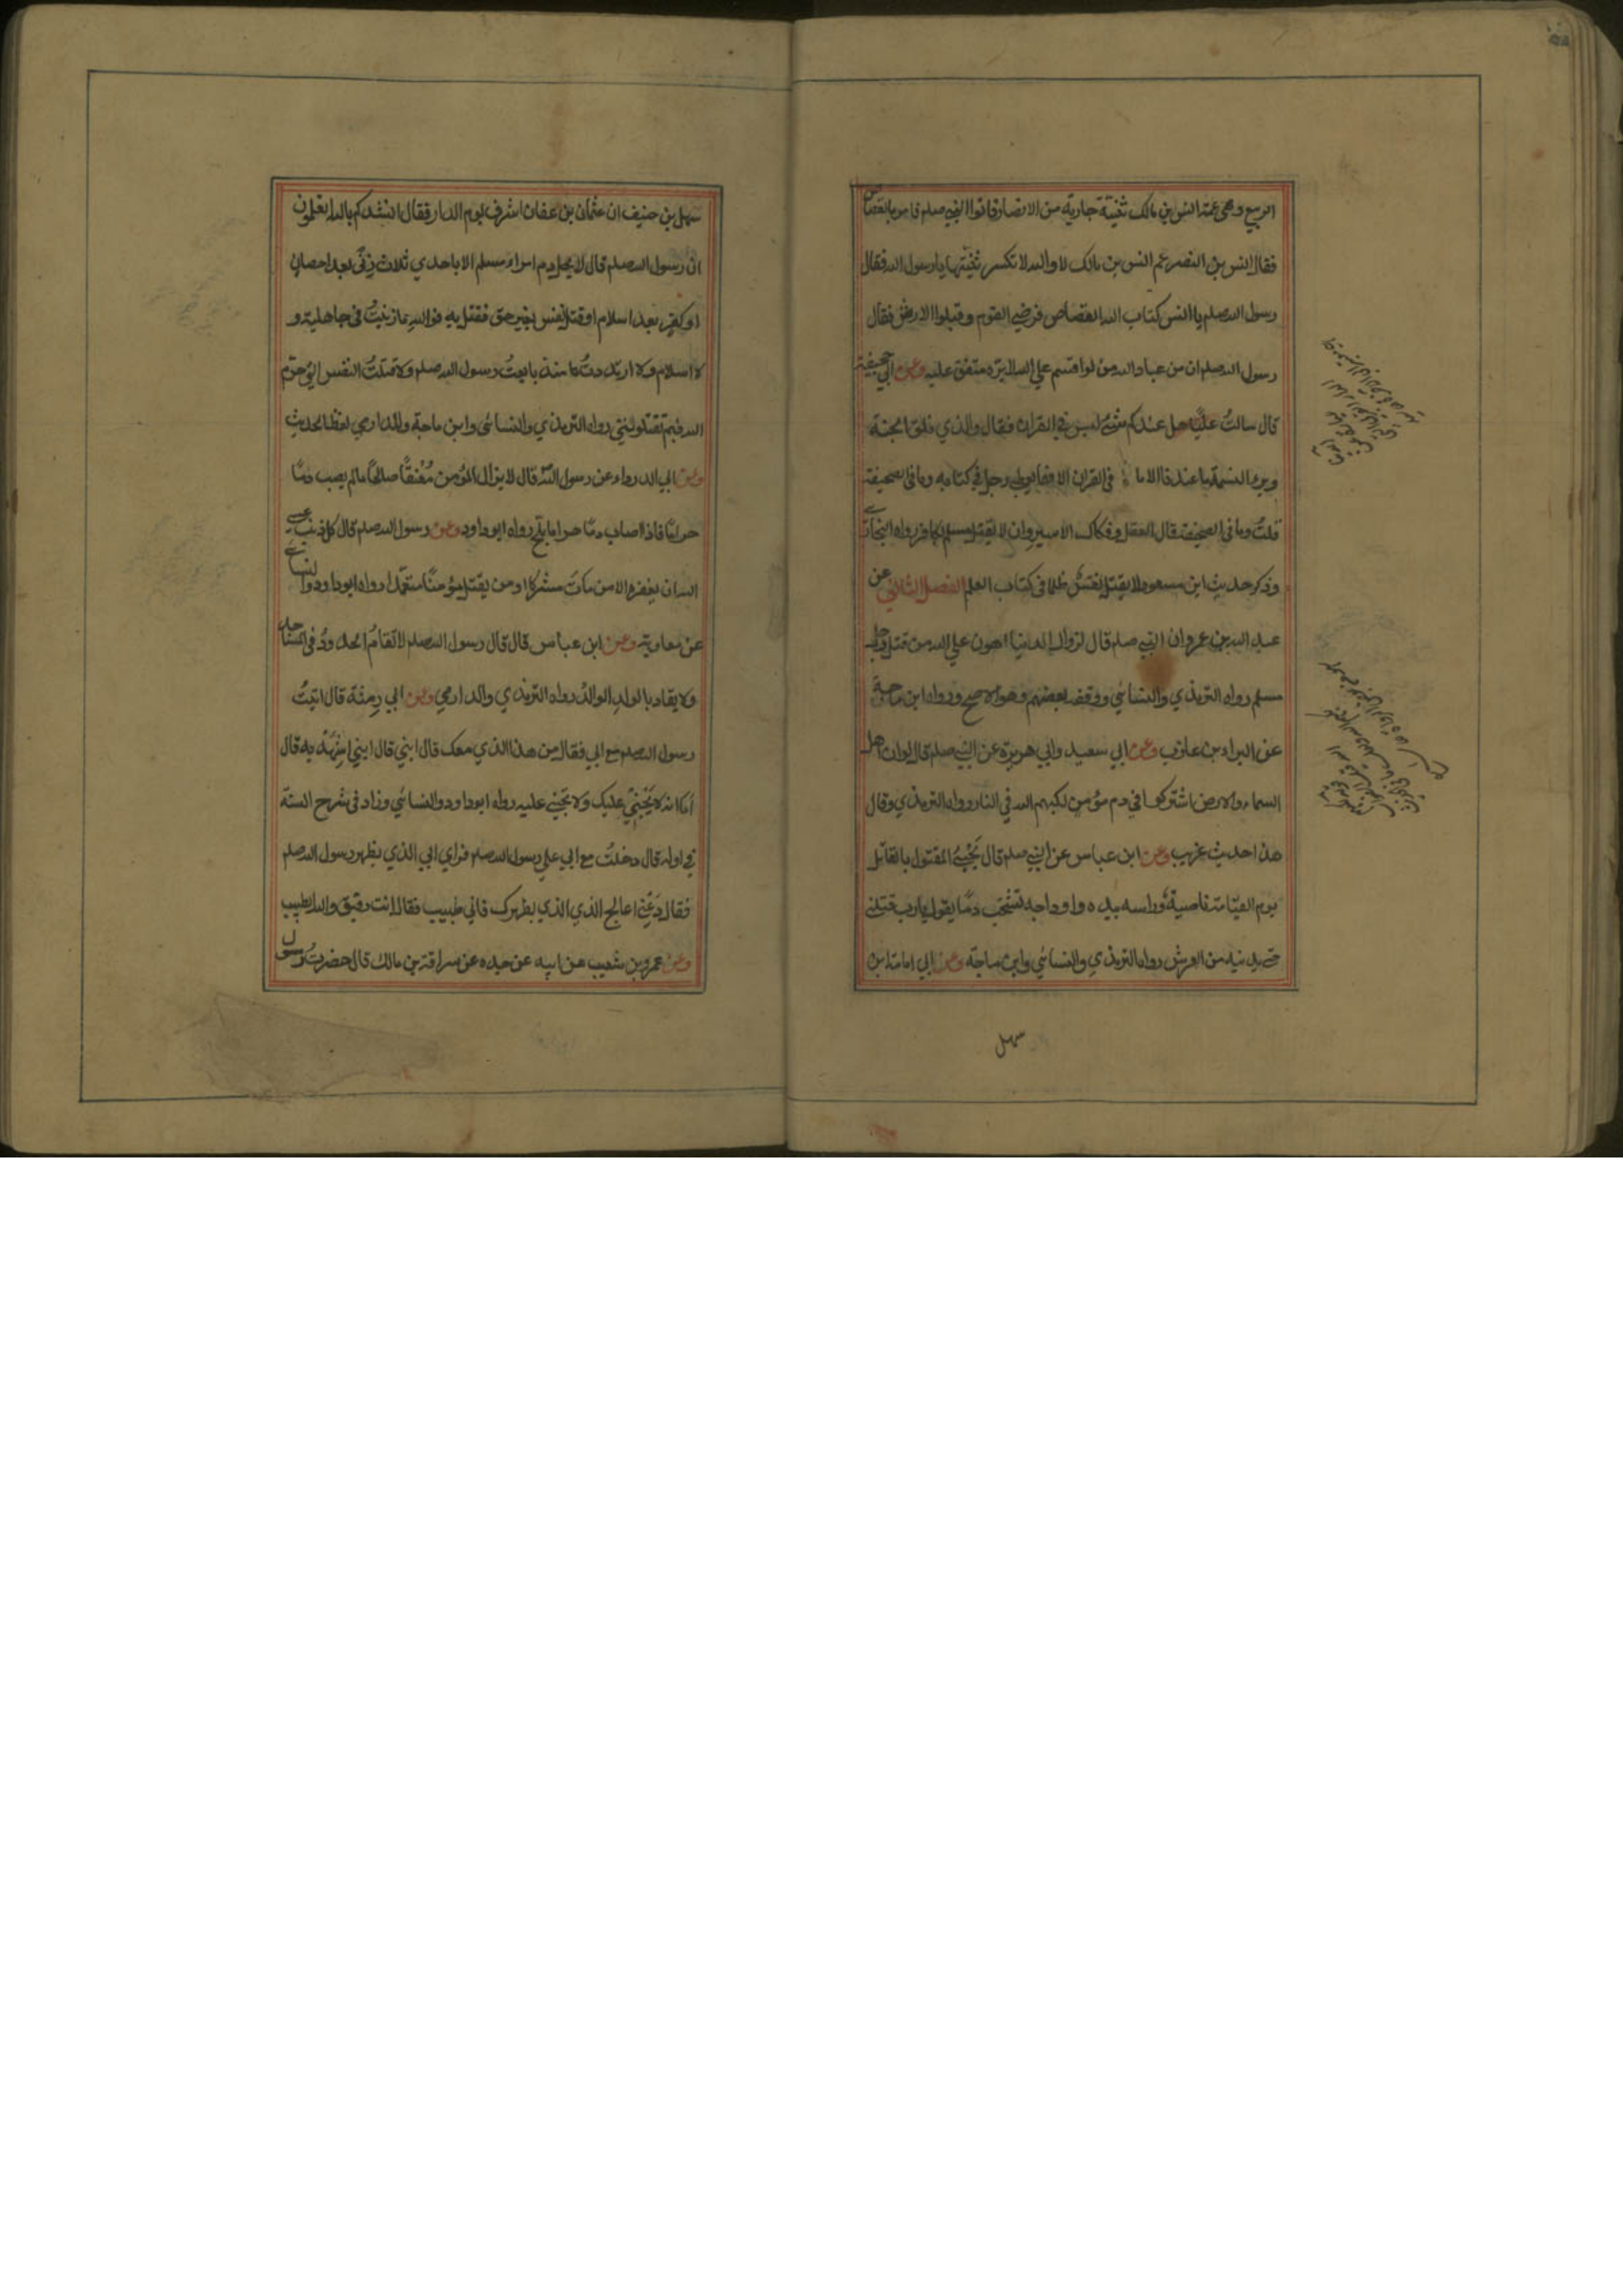 الربيع وهي عمة انس بن مالك ثنية جارية من الانصار فاتوا النبي صلعم فامر بالقصاص
فقال انس بن النضر عم انس بن مالك لا والله لا تكسر ثنيتها يا رسول الله فقال
رسول الله صلعم يا انس كتاب الله القصاص فرضي القوم وقبلوا الارش فقال
رسول الله صلعم ان من عباد الله من لو اقسم علي الله لابره متفق عليه وعن ابي جحيفة
قال سالتُ عليًا هل عندكم شئ ليس في القران فقال والذي فلق الجنة
وبرء النسمة ما عندنا الا ما في القران الا فهما يعطي رجل في كتابه وما في الصحيفة
قلتُ وما في الصحيفة قال العقل وفكاك الاسير وان لا يقتل مسلم بكافر رواه البخاري
وذكر حديث ابن مسعود لا يقتل نفسٌ ظلما في كتاب العلم الفصل الثاني عن
عبد الله بن عمرو ان النبي صلعم قال لزوال الدنيا اهون علي الله من قتل رجل
مسلم رواه الترمذي والنسائي ووقفه بعضهم وهو الاصح ورواه ابن ماجة
عن البراء بن عازب وعن ابي سعيد وابي هريرة عن النبي صلعم قال لو ان اهل
السماء والارض اشتركوا في دم مؤمن لكبهم الله في النار رواه الترمذي وقال
هذا حديث غريب وعن ابن عباس عن النبي صلعم قال يَجْيئُ المقتول بالقاتل
يوم القيامة ناصيةُ وراسه بيده واوداجه تشخب دمًا يقول يا رب قتلني
حتي يدنيه من العرش رواه الترمذي والنسائي وابن ماجة وعن ابي امامة بن
سهل
سهل بن حنيف ان عثمان بن عفان اشرف يوم الدار فقال انشدكم بالله اتعلمون
ان رسول الله صلعم قال لا يحل دم امراء مسلم الا باحدي ثلاث زنًي بعد احصان
او كفرٍ بعد اسلام او قتل نفس بغير حق فقتل به فوالله ما زنيتُ في جاهلية و
لا اسلام ولا ارتددتُ منذ بايعتُ رسول الله صلعم ولا قتلتُ النفس التي حرّم
الله فبم تقتلونني رواه الترمذي والنسائي وابن ماجة وللدارمي لفظ الحديث
وعن ابي الدرداء عن رسول الله قال لا يزال المؤمن مُعْنقًا صالحًا ما لم يصب دمًا
حرامًا فاذا اصاب دمًا حراما بلّح رواه ابو داود وعن رسول الله صلعم قال كل ذنب عسي
الله ان يغفره الا من ماتَ مشركا او من يقتل مؤمنًا متعمدا رواه ابو داود والنسائي
عن معاوية وعن ابن عباس قال قال رسول الله صلعم لا تقامُ الحدودُ في المساجد
ولا يقاد بالولد الوالدُ رواه الترمذي والدارمي وعن ابي رمثة قال اتيتُ
رسول الله صلعم مع ابي فقال من هذا الذي معك قال ابني قال ابني اشهَدْ به قال
اَمَا انه لا يَجْنِيْ عليك ولا تجني عليه رواه ابو داود والنسائي وزاد في شرح السنة
في اوله قال دخلتُ مع ابي علي رسول الله صلعم فراي ابي الذي بظهر رسول الله صلعم
فقال دَعْنِي اعالج الذي الذي بظهرك فاني طبيب فقال انت رفيق والله الطبيب
وعن عمرو بن شعيب عن ابيه عن جده عن سراقة بن مالك قال حضرتُ رسول